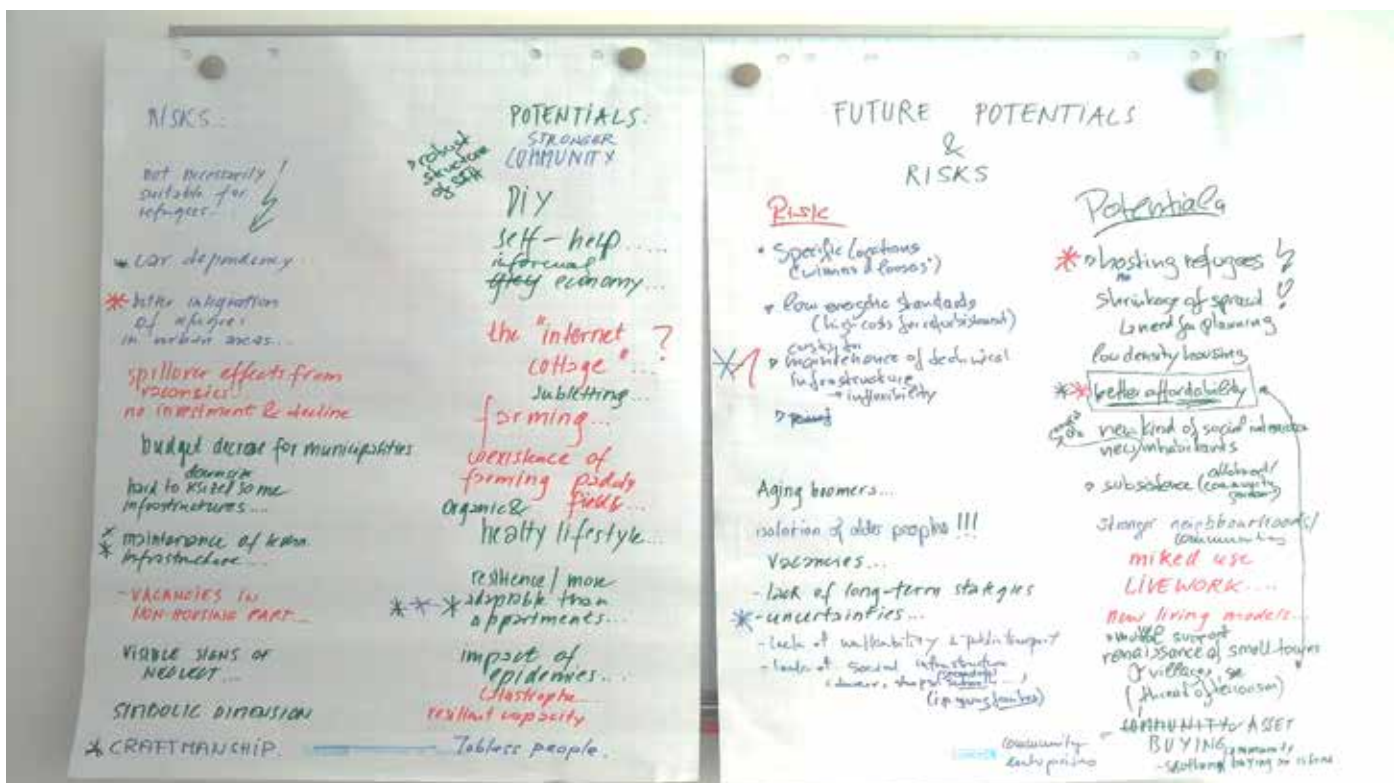 RISKS...
not necessarily
suitable for
refugees.
car dependency...
better integration
of refugees
in urban areas...
spillover effects from
vacancies...
no investment & decline
budget decrease for municipalities
hard to
some
infrastructures...
maintenance of
infrastructure...
- VACANCIES IN
NON-HOUSING PART...
VISIBLE SIGNS OF
NEGLECT...
SIMBOLIC DIMENSION
CRAFTMANCHIP.
POTENTIALS:
robust
structure
STRONGER
COMMUNITY
DIY
self-help.....
informal
economy...
the "internet
cottage"... ?
subletting...
farming...
coexistence of
farming paddy
fields...
organic &
healty lifestyle...
resilience / more
adaptable than
appartments...
impact of
epidemies...
resiliant capacity
Jobless people.
FUTURE POTENTIALS
&
RISKS
Risk
specific locations
low energetic standards
(high costs for refurbishment)
maintenance of technical
infrastructure
→ inflexibility
Aging boomers...
isolation of older peoples !!!
Vacancies...
- lack of long-term stategies
- uncertainties...
- lack of walkability & public transport
- lack of social infrastructure
Potentials
hosting refugees
shrinkage of sprawl
low density housing
better affordability
new kind of social
new inhabitants
subsistence
stronger neighbourhoods/
communities
mixed use
LIVE WORK....
new living models...
support
renaissance of small towns
& villages,
(threat of terrorism)
COMMUNITY ASSET
BUYING
community
enterprises